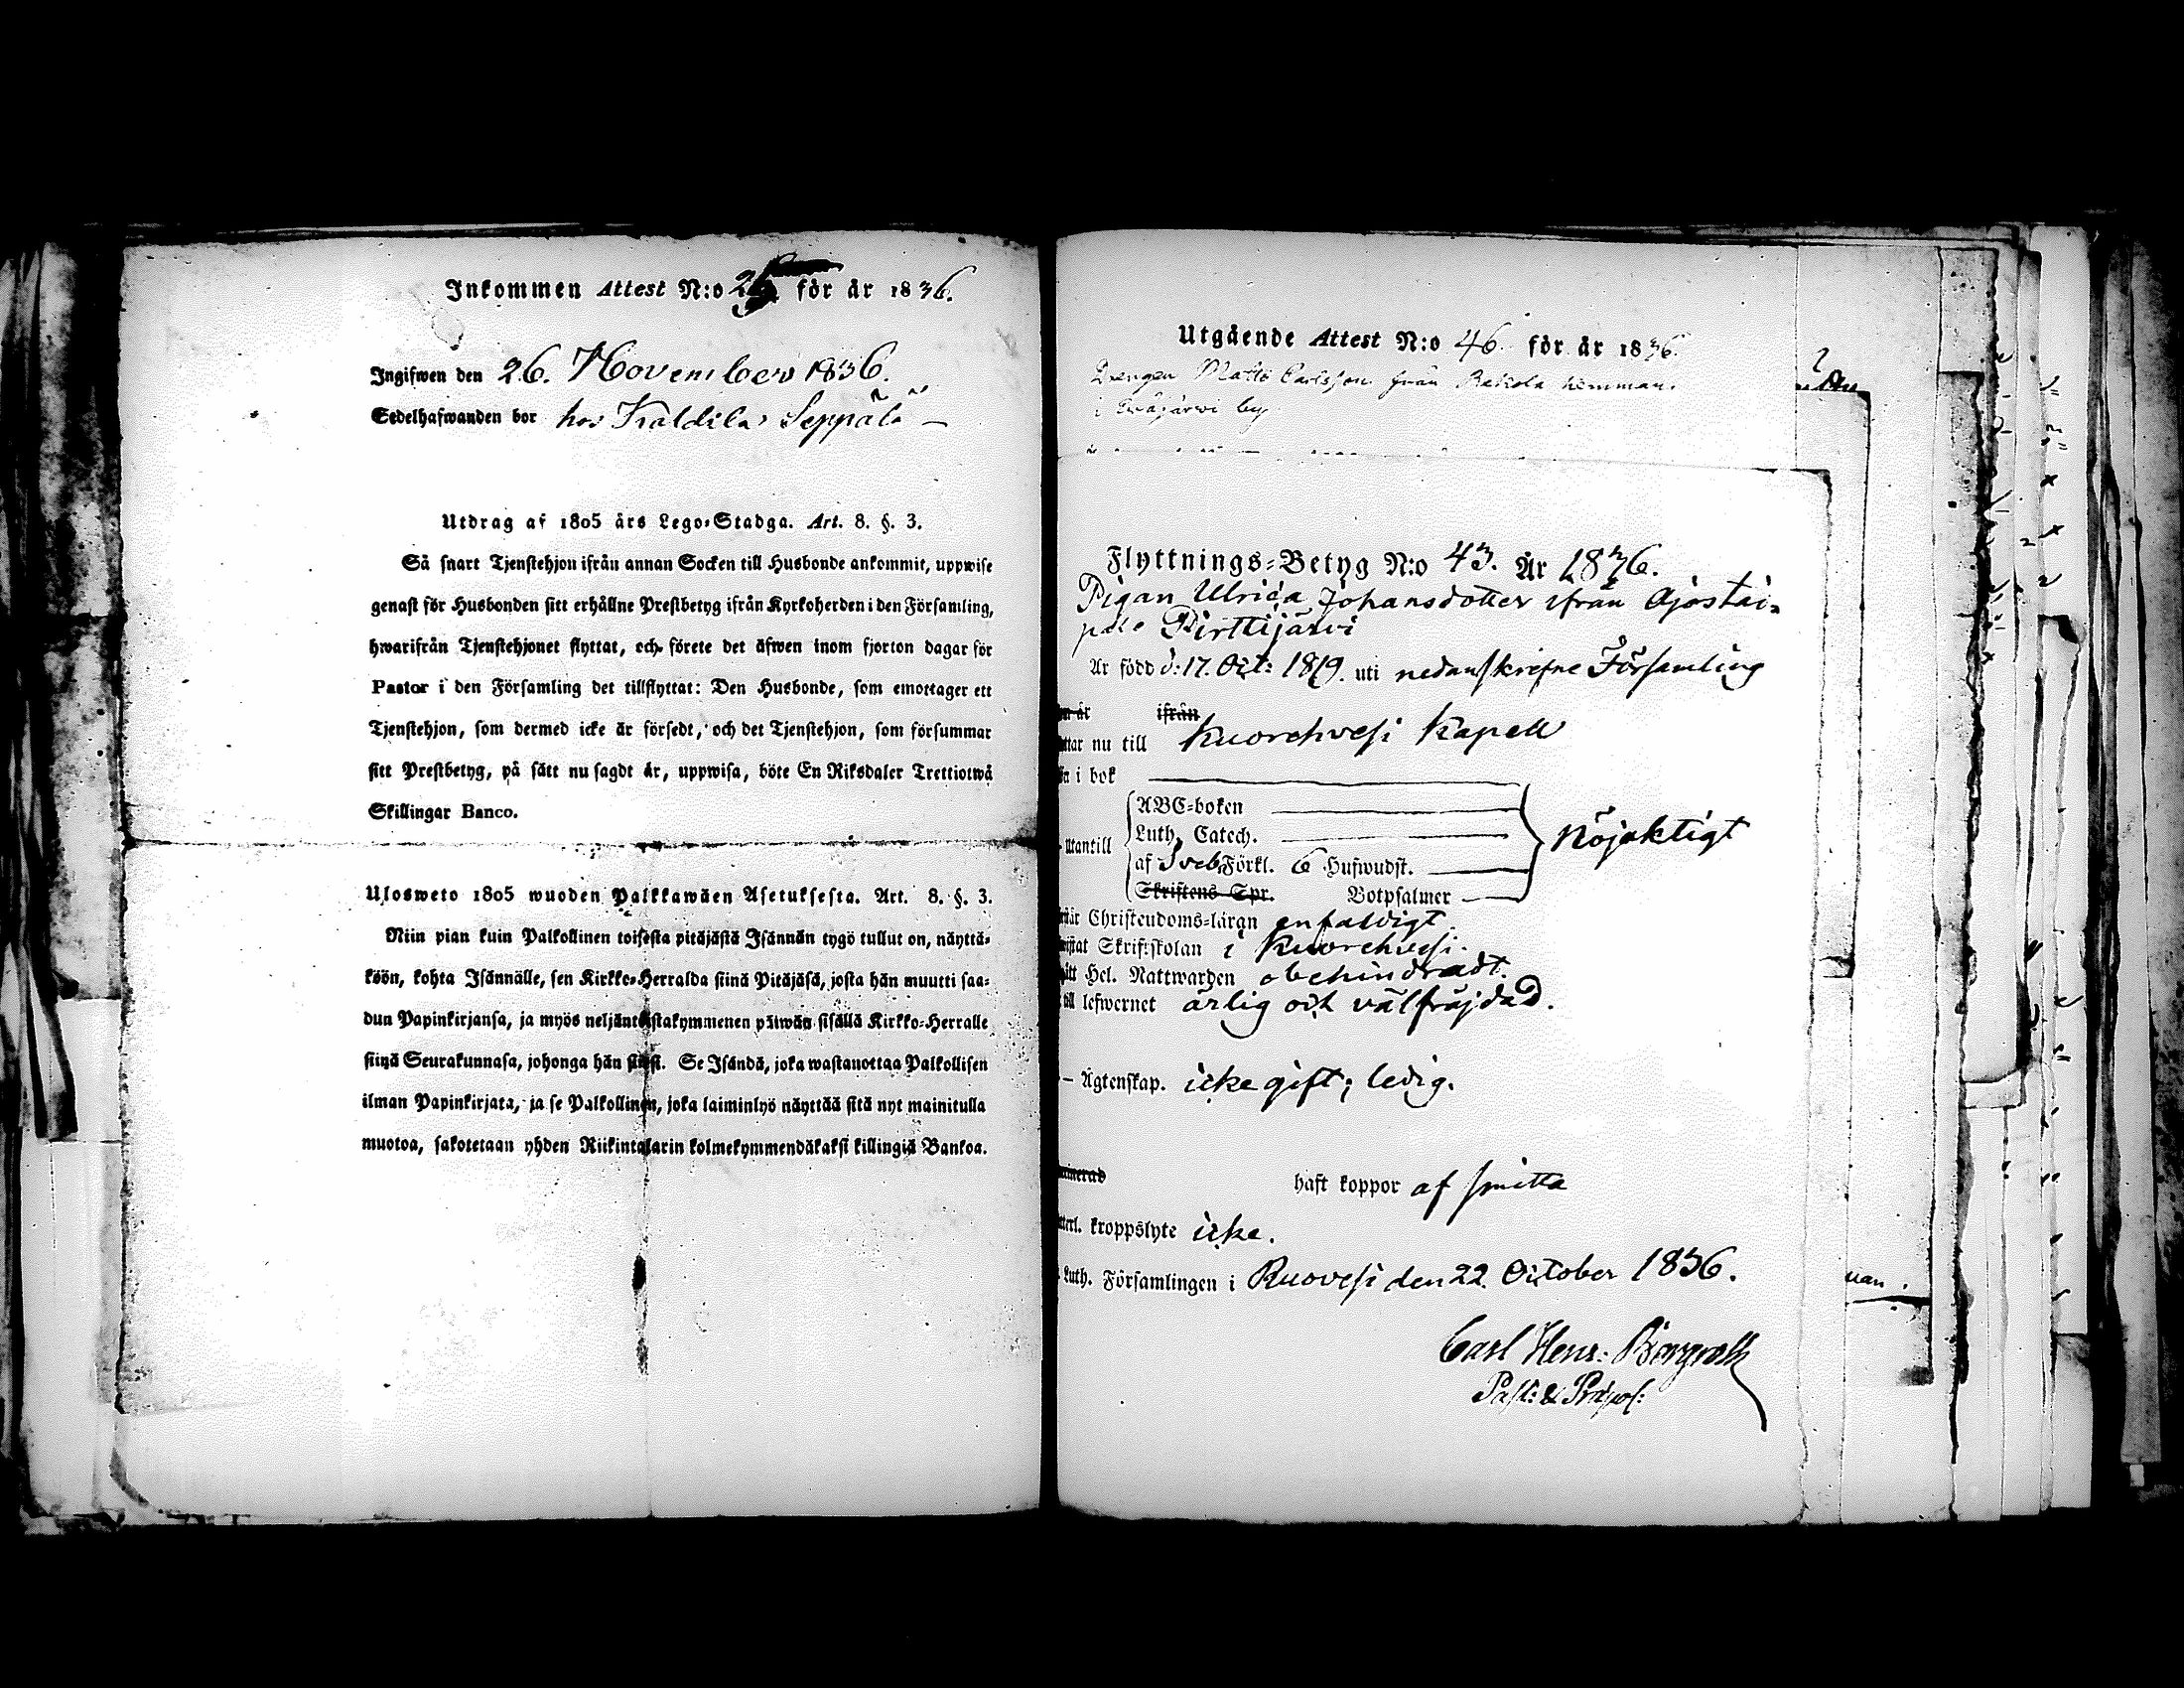 Inkommen Attest N:o för år 1836.
Ingifwen den 26. November 1836.
Sedelhafwanden bor hos Kaldila Seppälä
Utdrag af 1805 års Lego-Stadga. Art. 8. §. 3.
Så snart Tjenstehjon ifrån annan Socken till Husbonde ankommit, uppwise
genast för Husbonden sitt erhållne Prestbetyg ifrån Kyrkoherden i den Församling,
hwarifrån Tjenstehjonet flyttat, och förete det äfwen inom fjorton dagar för
Pastor i den Församling det tillflyttat: Den Husbonde, som emottager ett
Tjenstehjon, som dermed icke är försedt, och det Tjenstehjon, som försummar
sitt Prestbetyg, på sätt nu sagdt är, uppwisa, böte En Riksdaler Trettiotwå
Skillingar Banco.
Ulosweto 1805 wuoden Palkkawäen Asetuksesta. Art. 8. §. 3.
Niin pian kuin Palkollinen toisesta pitäjästä Isännän tygö tullut on, näyttä-
köön, kohta Isännälle, sen Kirkko-Herralda siinä Pitäjäsä, josta hän muutti saa-
dun Papinkirjansa, ja myös neljäntoistakymmenen päiwän sisällä Kirkko-Herralle
siinä Seurakunnasa, johonga hän siirsi. Se Isändä, joka wastanottaa Palkollisen
ilman Papinkirjata, ja se Palkollinen, joka laiminlyö näyttää sitä nyt mainitulla
muotoa, sakotetaan yhden Riikintalarin kolmekymmendäkaksi killingiä Bankoa.
Utgående Attest N:o 46. för år 1836.
Drengen Matts Carlsson från hemman.
i by
Flyttnings-Betyg N:o 43. År 1836.
Pigan Ulrica Johansdotter ifrån Ajostai-
pale Pirttijärvi
Är född d: 17. Oct: 1819. uti nedanskrefne Församling
ifrån
nu till Kuorehvesi Kapell
i bok
ABC-boken
Luth. Catech. Nöjaktigt
utantill
af Sveb. Förkl. 6 Hufwudst.
Skriftens Spr. Botpsalmer
Christendoms-läran enfaldigt
Skriftskolan i Kuorehvesi.
Hel. Nattwarden obehindradt.
till lefwernet ärlig och välfräjdad.
– Ägtenskap. icke gift; ledig.
haft koppor af smitta
kroppslyte icke.
Luth. Församlingen i Ruovesi den 22. October 1836.
Carl Henr: Bergroth
Past: & Præpos: